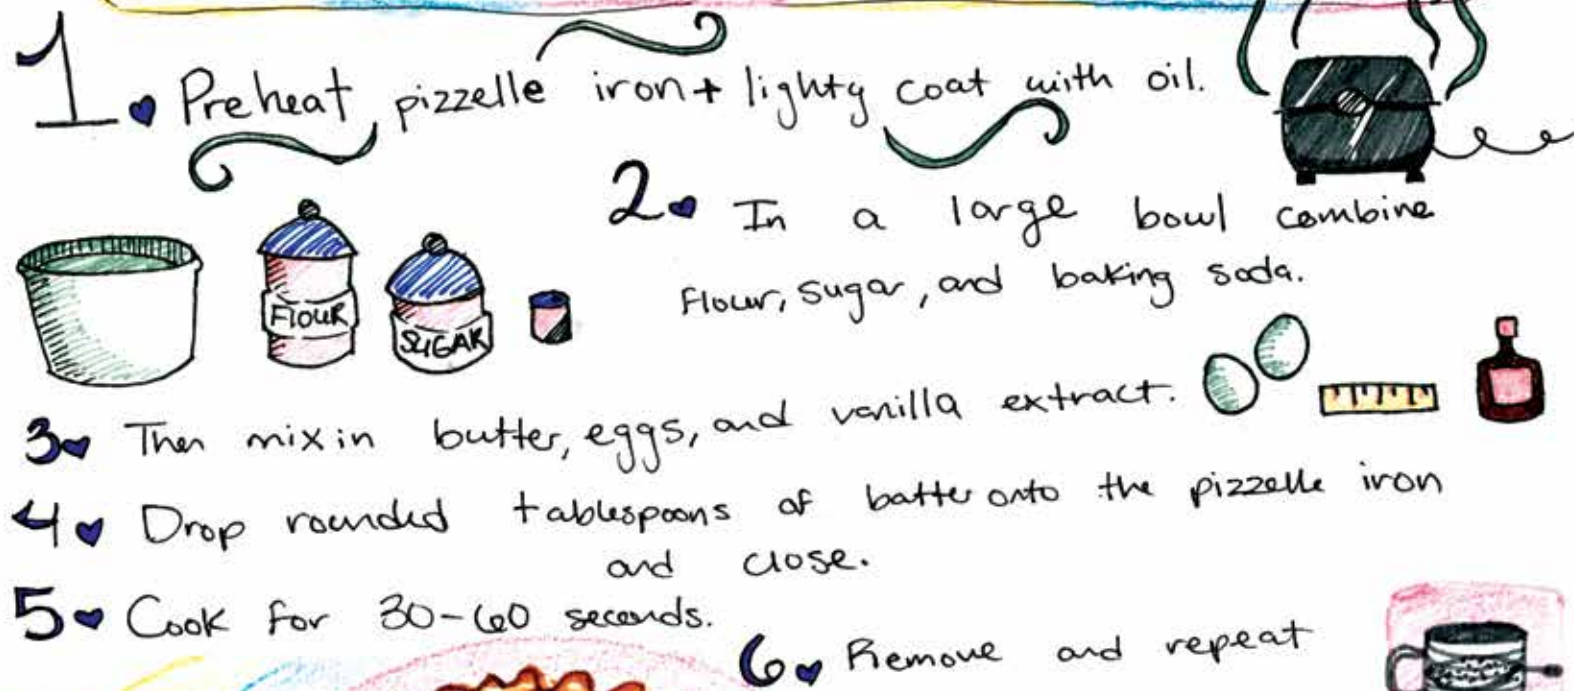 1. Preheat pizzelle iron + lighty coat with oil.
2. In a large bowl combine
flour, sugar, and baking soda.
FLOUR
SUGAR
3 Then mix in butter, eggs, and vanilla extract.
4 Drop rounded tablespoons of batter onto the pizzelle iron
and close.
5 Cook for 30-60 seconds.
6 Remove and repeat